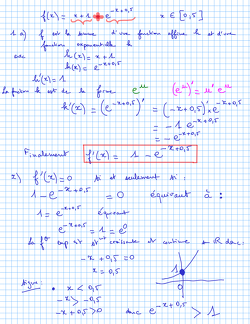 f(x) = x + 1 + e^{-x+0,5}    x ∈ [0,5]
1 a) f est la somme d'une fonction affine h et d'une
fonction exponentielle k
avec h(x) = x + 1
k(x) = e^{-x+0,5}
h'(x) = 1
La fonction k est de la forme e^u    (e^u)' = u' e^u
k'(x) = (e^{-x+0,5})' = (-x+0,5)' × e^{-x+0,5}
= -1 e^{-x+0,5}
= - e^{-x+0,5}
Finalement f'(x) = 1 - e^{-x+0,5}
2) f'(x) = 0 si et seulement si :
1 - e^{-x+0,5} = 0 équivaut à :
1 = e^{-x+0,5} équivaut
e^{-x+0,5} = 1 = e^0
La f° exp est st^t croissante et continue sur ℝ donc :
-x + 0,5 = 0
x = 0,5
1
0
signe • x < 0,5
-x > -0,5
-x + 0,5 > 0 donc e^{-x+0,5} > 1